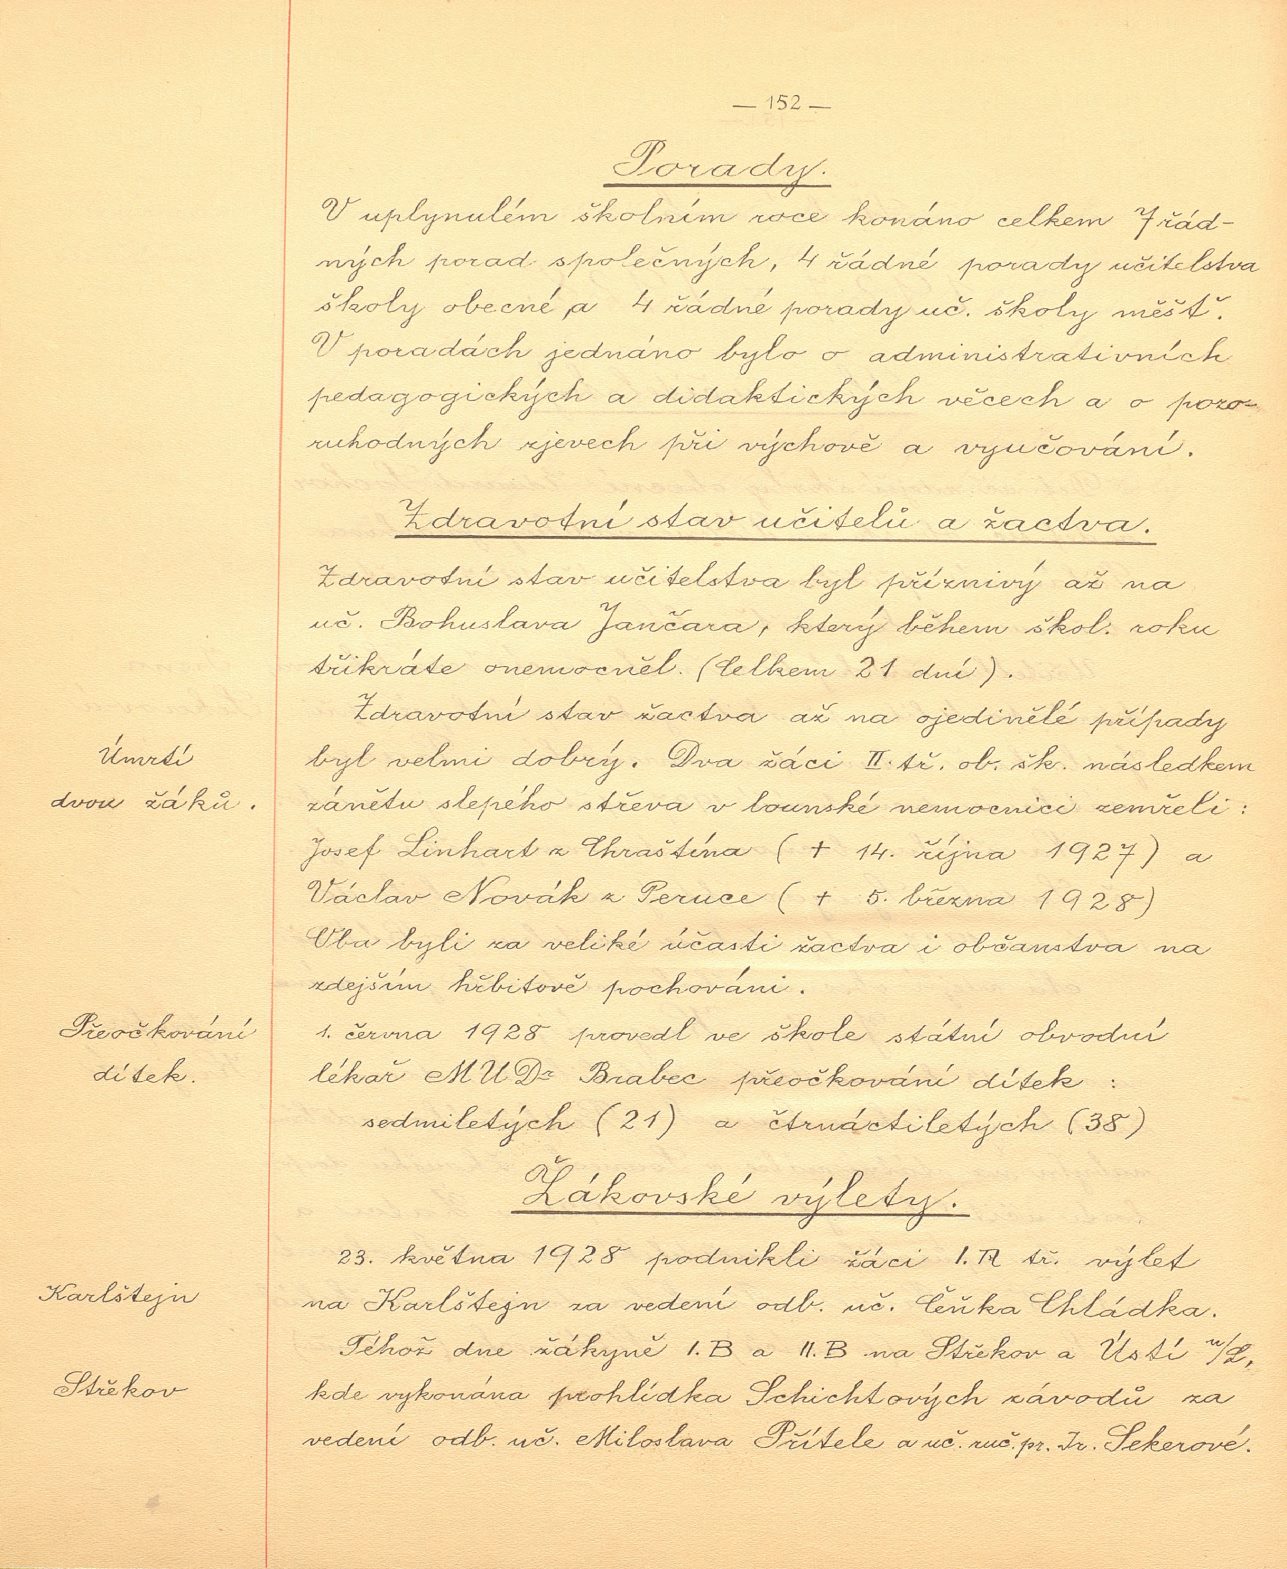 — 152 —
Porady.
V uplynulém školním roce konáno celkem 7 řád-
ných porad společných, 4 řádné porady učitelstva
školy obecné a 4 řádné porady uč. školy měšť.
V poradách jednáno bylo o administrativních
pedagogických a didaktických věcech a o pozo-
ruhodných zjevech při výchově a vyučování.
Zdravotní stav učitelů a žactva.
Zdravotní stav učitelstva byl příznivý až na
uč. Bohuslava Jančara, který během škol. roku
třikráte onemocněl. (Celkem 21 dní).
Zdravotní stav žactva až na ojedinělé případy
Úmrtí
byl velmi dobrý. Dva žáci II. tř. ob. šk. následkem
dvou žáků.
zánětu slepého střeva v lounské nemocnici zemřeli:
Josef Linhart z Chraštína ( + 14. října 1927) a
Václav Novák z Peruce ( + 5. března 1928)
Oba byli za veliké účasti žactva i občanstva na
zdejším hřbitově pochováni.
Přeočkování
1. června 1928 provedl ve škole státní obvodní
dítek.
lékař MUDr Brabec přeočkování dítek :
sedmiletých (21) a čtrnáctiletých (38)
Žákovské výlety.
23. května 1928 podnikli žáci I.A tř. výlet
Karlštejn
na Karlštejn za vedení odb. uč. Čeňka Chládka.
Téhož dne žákyně I.B a II.B na Střekov a Ústí n/L,
Střekov
kde vykonána prohlídka Schichtových závodů za
vedení odb. uč. Miloslava Přítele a uč. ruč. pr. Fr. Sekerové.